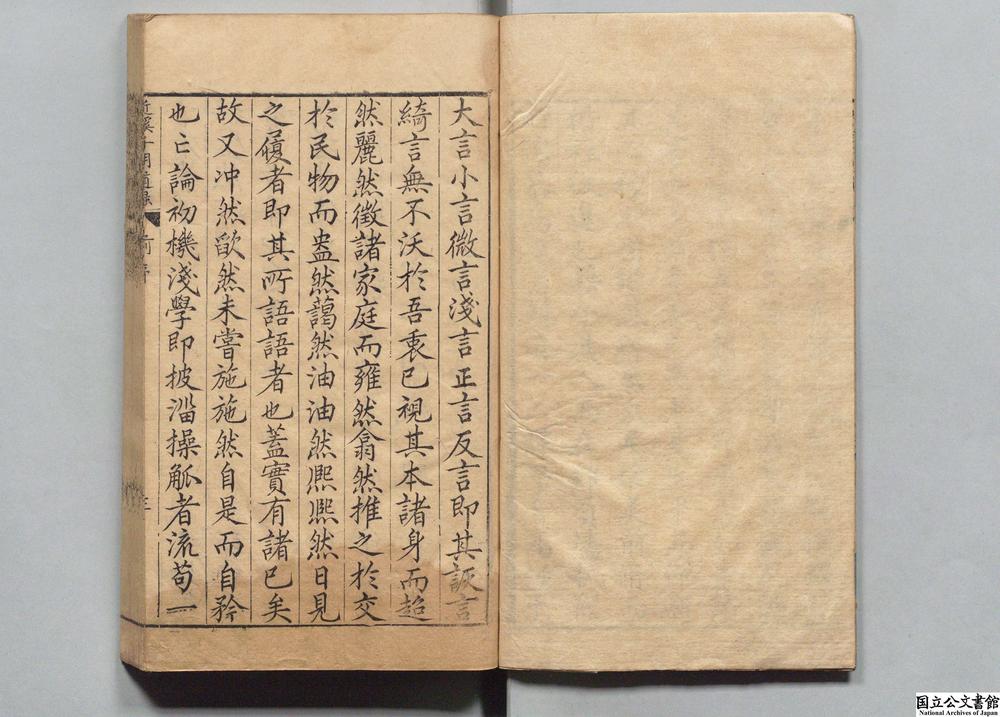 大言小言微言淺言正言反言即其詼言
綺言無不沃於吾衷已視其本諸身而超
然麗然徵諸家庭而雍然翕然推之於交
於民物而盎然藹然油油然熈熈然日見
之履者即其所語語者也蓋實有諸己矣
故又冲然歉然未嘗施施然自是而自矜
也亡論初機淺學即披淄操觚者流苟一
国立公文書館
National Archives of Japan